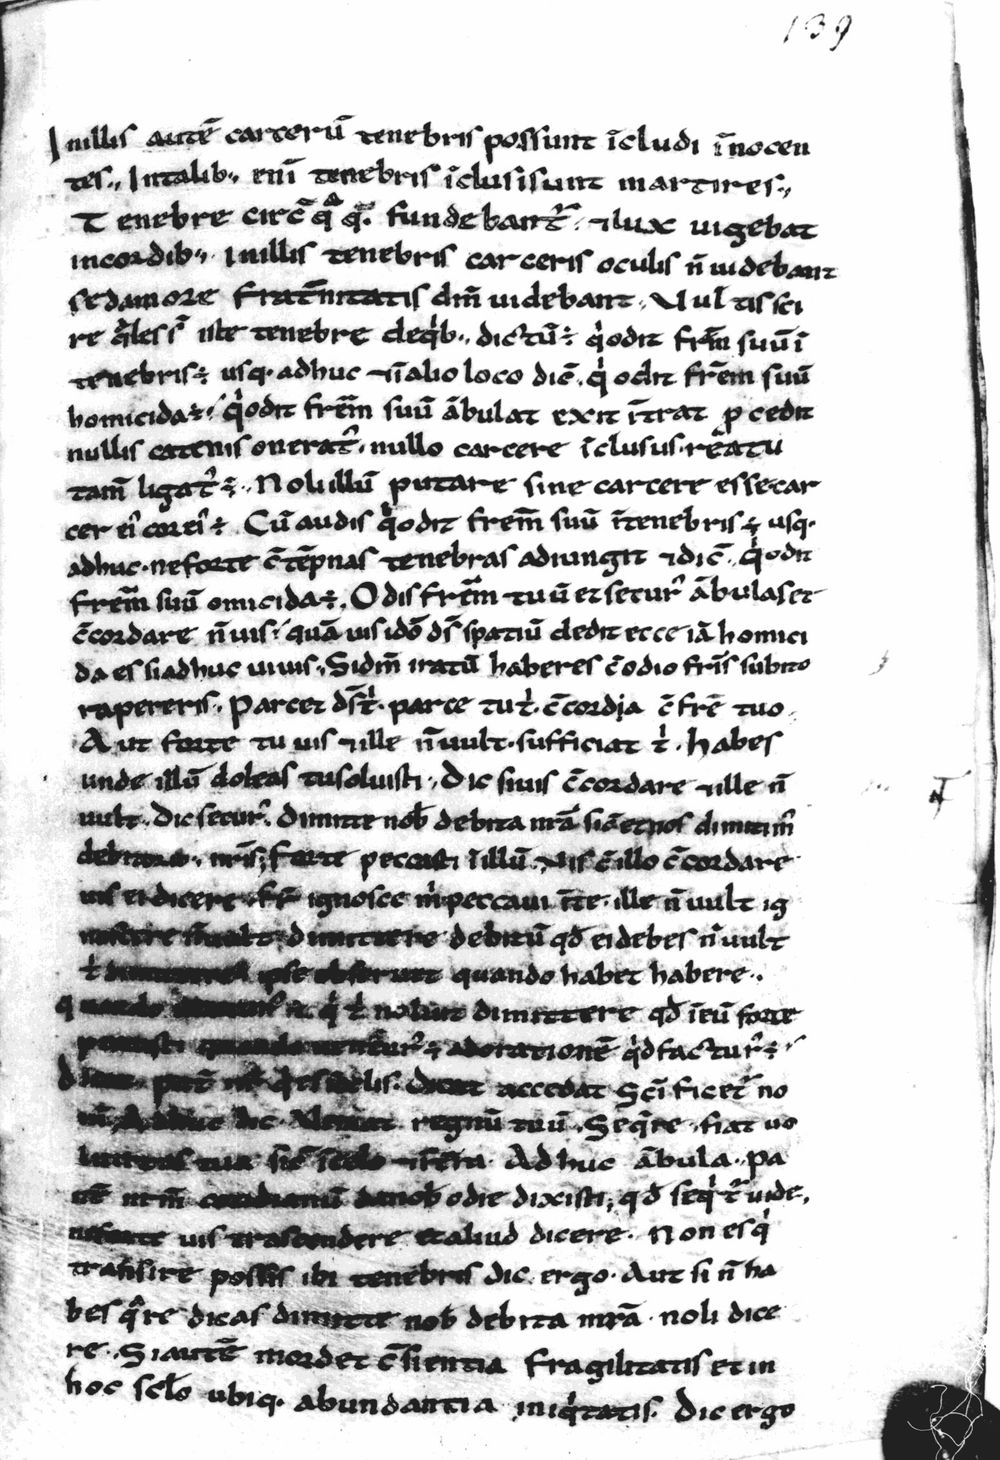 139
Inillis autē carcerū tenebris possunt īcludi īnocen
tes., Intalib., enī tenebris īclusisunt martires.,
Tenebre circā quā qͣ. fundebant᷑. ⁊lux uigebat
incordib., Inillis tenebris carceris oculis ñ uidebant
sedamore frat̄nitatis dm̄ uidebant. Vultis sci
re q̄les s̄t iste tenebre deqͥb., dictū ÷ qͥodit frēm suū ī
tenebris÷ usq. adhuc ⁊īalio loco dic̄. qͥ odit frēm suū
homicida÷. qͥodit frēm suū ābulat exit īt̄rat ꝓcedit
nullis catenis onerat᷑. nullo carcere īclusus. reatu
tam̄ ligat᷑ ÷. Noliillū putare sine carcere essecar
cer eiͥ cor eiͥ ÷. Cū audis qͥodit frem̄ suū ītenebris÷ usq.
adhuc. neforte c̄tēpnas tenebras adiungit ⁊dic̄. qͥodit
frēm suū omicida÷. Odis frēm tuū et secur᷑ ābulas et
c̄cordare ñ uis. quā uis idō ds̄ spatiū dedit ecce iā homici
da es siadhuc uiuis. Sidm̄ iratū haberes c̄ odio fr̄is subito
rapereris. Parcet ds̄ tͥ. parce tu tͥ. c̄cordia c̄ frē tuo.
Aut forte tu uis ⁊ille ñ uult. sufficiat tͥ. habes
unde illū doleas tusoluisti. Dic siuis c̄cordare ⁊ille ñ
uult. Dic secur᷑. Dimitte nob̄ debita nrā sic̄ et nos dimitim᷑
debitorib. nr̄is; Forte peccasti īillū. ⁊uis c̄ illo c̄cordare
uis ei dicere. fr̄ ignosce mͥ peccaui īte. ille ñ uult ig
noscere ñ uult dimittere debitū qd̄ ei debes ñ uult
tͥ ipse obseruet quando habet habere.
q tͥ noluit dimittere qd̄ īeū forte
÷ adorationē qͥd factur᷑ ÷
dicat accedat Sc̄i ficet᷑ no
m̄ Adhuc dic. Veniat regnū tuū. Seq̄re. fiat uo
luntas tua sic̄ ⁊īterra. Adhuc ābula. pa
nē nrm̄ cotidianū danob̄ odie dixisti; qd̄ seqͥt᷑ uide,
neforte uis trascendere etaliud dicere. Non es qͥ
transire possis ibi tenebris dic. ergo. Aut si ñ ha
bes qͣre dicas dimitte nob̄ debita nrā. noli dice
re. Siautē mordet c̄sientia fragilitatis et in
hoc scło ubiq. abundantia iniqͥtatis. Dic ergo